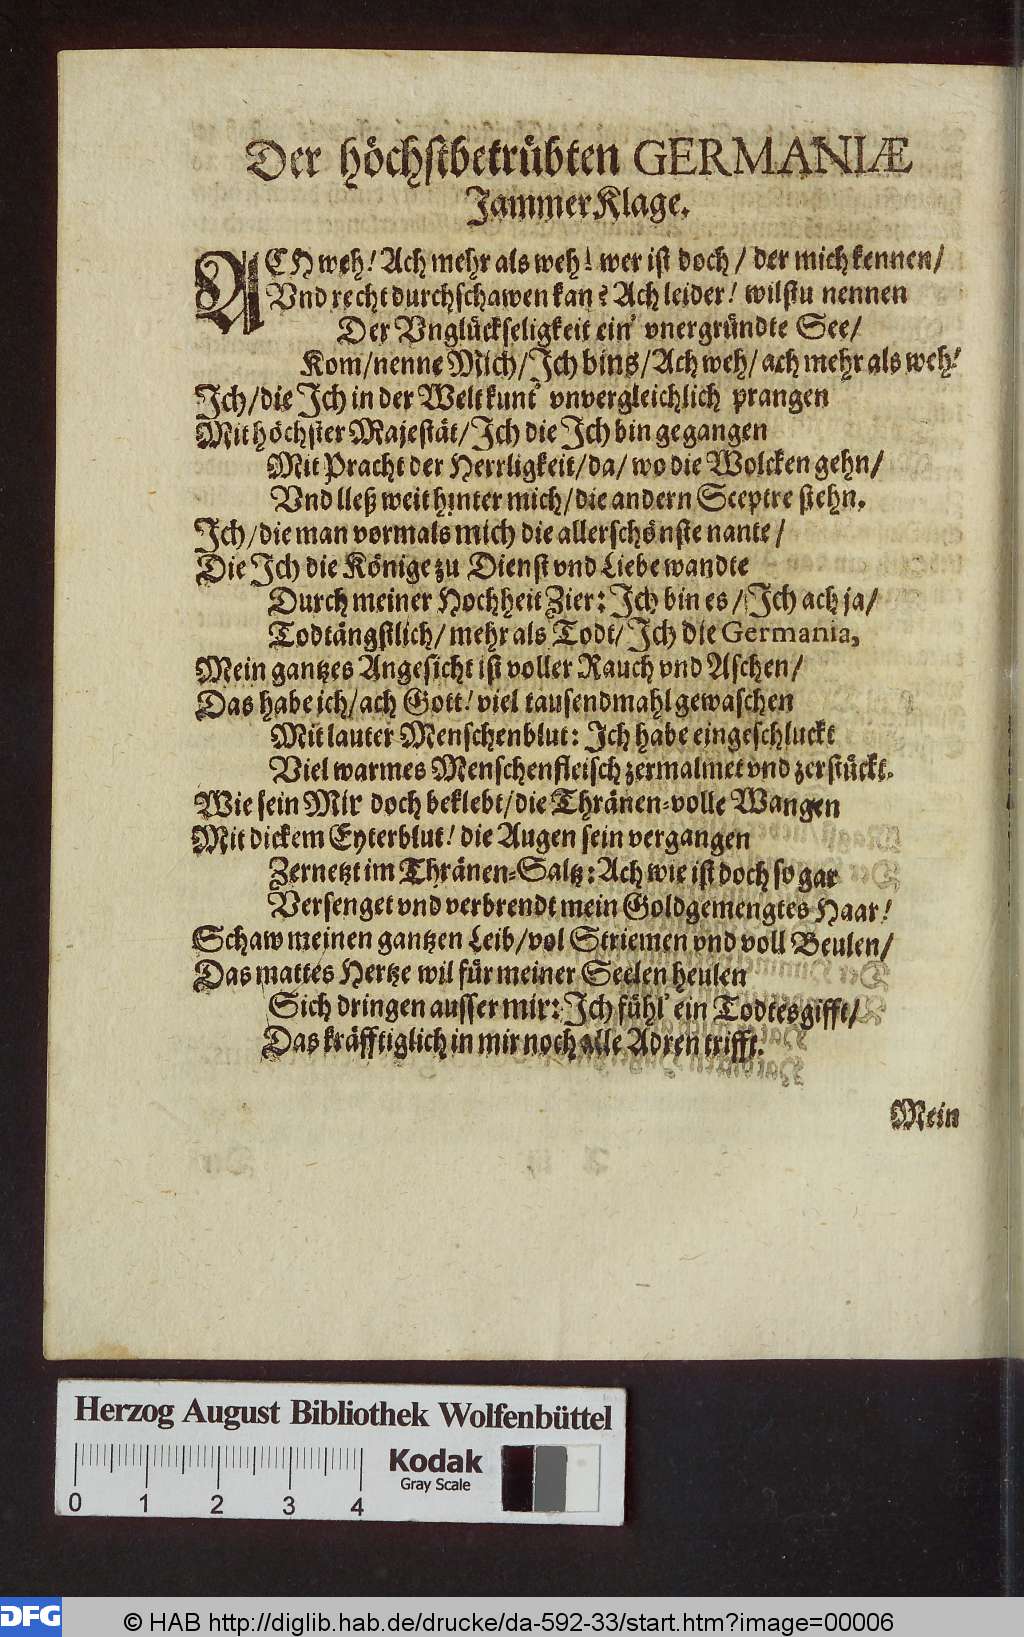 Der höchstbetrübten GERMANIÆ
JammerKlage.
ACH weh! Ach mehr als weh! wer ist doch / der mich kennen /
Vnd recht durchschawen kan? Ach leider! wilstu nennen
Der Vnglückseligkeit ein' vnergründte See /
Kom / nenne Mich / Ich bins / Ach weh / ach mehr als weh!
Ich / die Ich in der Welt kunt' vnvergleichlich prangen
Mit höchster Majestät / Ich die Ich bin gegangen
Mit Pracht der Herrligkeit / da / wo die Wolcken gehn /
Vnd lleß weit hinter mich / die andern Sceptre stehn.
Ich / die man vormals mich die allerschönste nante /
Die Ich die Könige zu Dienst vnd Liebe wandte
Durch meiner Hochheit Zier: Ich bin es / Ich ach ja /
Todtängstlich / mehr als Todt / Ich die Germania,
Mein gantzes Angesicht ist voller Rauch vnd Aschen /
Das habe ich / ach Gott! viel tausendmahl gewaschen
Mit lauter Menschenblut: Ich habe eingeschluckt
Viel warmes Menschenfleisch zermalmet vnd zerstückt.
Wie sein Mir doch beklebt / die Thränen-volle Wangen
Mit dickem Eyterblut! die Augen sein vergangen
Zernetzt im Thränen-Saltz: Ach wie ist doch so gar
Versenget vnd verbrendt mein Goldgemengtes Haar!
Schaw meinen gantzen Leib / vol Striemen vnd voll Beulen /
Das mattes Hertze wil für meiner Seelen heulen
Sich dringen ausser mir: Ich fühl' ein Todtesgifft /
Das kräfftiglich in mir noch alle Adren trifft.
Mein
Herzog August Bibliothek Wolfenbüttel
Kodak
Gray Scale
0 1 2 3 4
DFG
© HAB http://diglib.hab.de/drucke/da-592-33/start.htm?image=00006